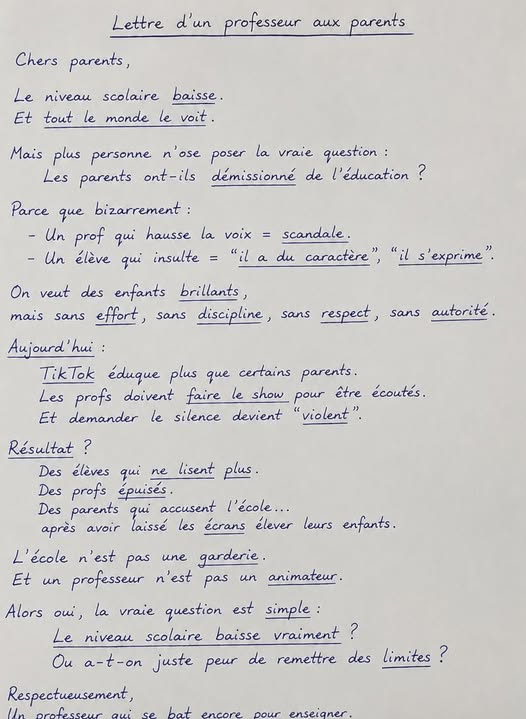 Lettre d'un professeur aux parents
Chers parents,
Le niveau scolaire baisse.
Et tout le monde le voit.
Mais plus personne n'ose poser la vraie question :
Les parents ont-ils démissionné de l'éducation ?
Parce que bizarrement :
- Un prof qui hausse la voix = scandale.
- Un élève qui insulte = "il a du caractère", "il s'exprime".
On veut des enfants brillants,
mais sans effort, sans discipline, sans respect, sans autorité.
Aujourd'hui :
TikTok éduque plus que certains parents.
Les profs doivent faire le show pour être écoutés.
Et demander le silence devient "violent".
Résultat ?
Des élèves qui ne lisent plus.
Des profs épuisés.
Des parents qui accusent l'école...
après avoir laissé les écrans élever leurs enfants.
L'école n'est pas une garderie.
Et un professeur n'est pas un animateur.
Alors oui, la vraie question est simple :
Le niveau scolaire baisse vraiment ?
Ou a-t-on juste peur de remettre des limites ?
Respectueusement,
Un professeur qui se bat encore pour enseigner.